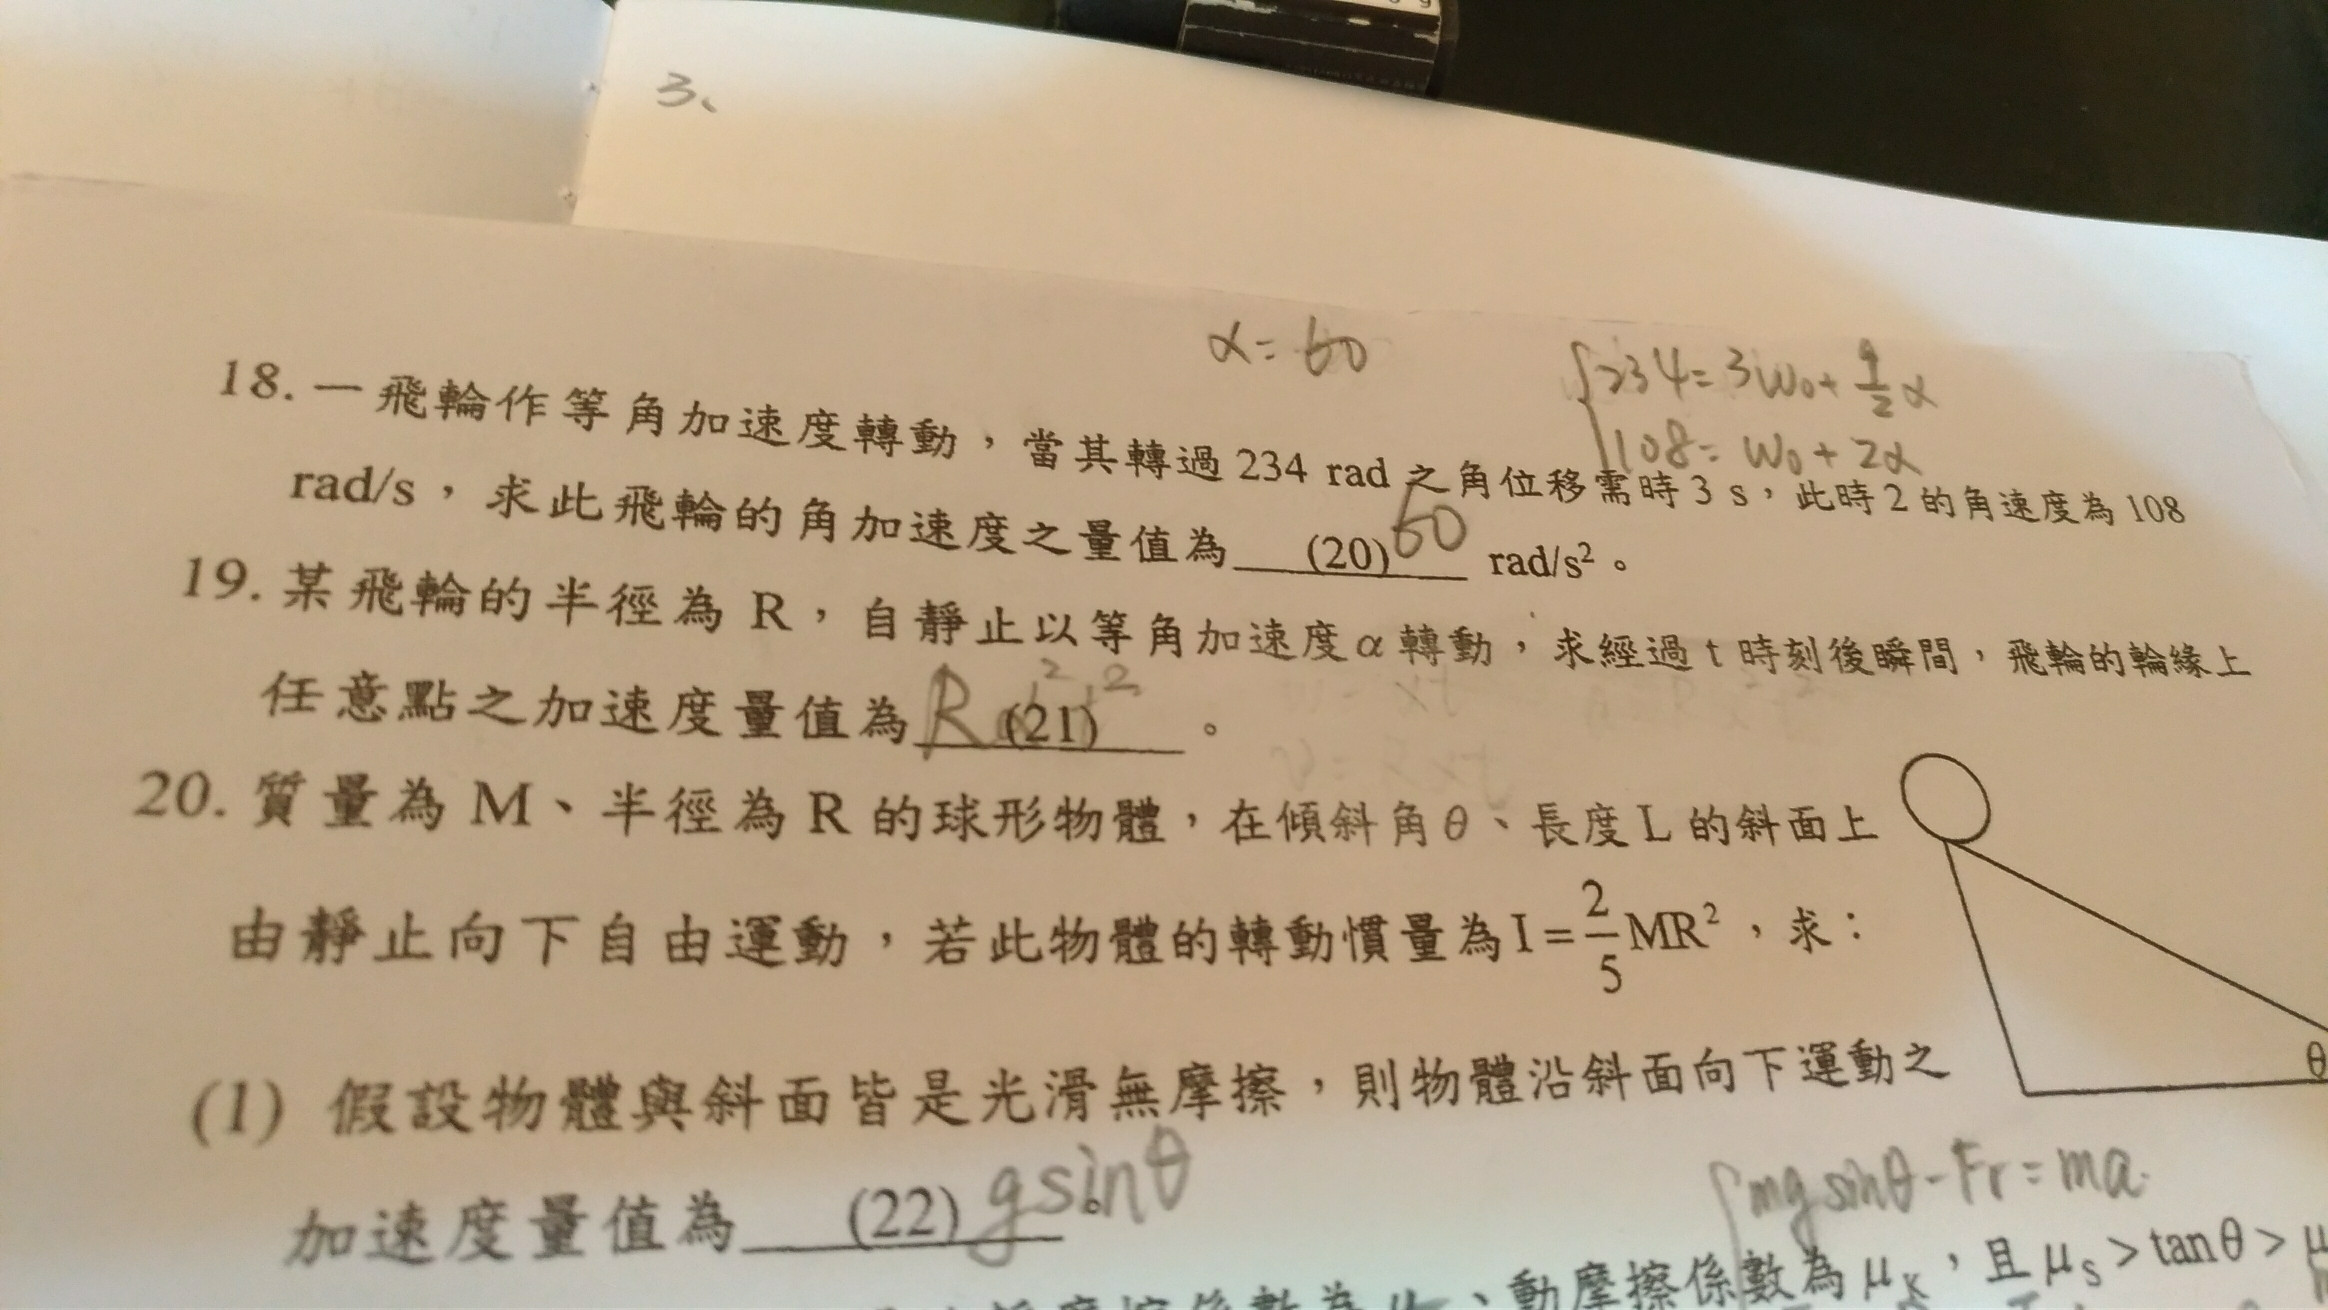 3、
α = 60
234 = 3W₀ + 9/2 α
108 = W₀ + 2α
18. 一飛輪作等角加速度轉動，當其轉過 234 rad 之角位移需時 3 s，此時 2 的角速度為 108
rad/s，求此飛輪的角加速度之量值為 (20) 60 rad/s²。
19. 某飛輪的半徑為 R，自靜止以等角加速度 α 轉動，求經過 t 時刻後瞬間，飛輪的輪緣上
任意點之加速度量值為 R (21) 。
20. 質量為 M、半徑為 R 的球形物體，在傾斜角 θ、長度 L 的斜面上
由靜止向下自由運動，若此物體的轉動慣量為 I = 2/5 MR²，求：
θ
(1) 假設物體與斜面皆是光滑無摩擦，則物體沿斜面向下運動之
加速度量值為 (22) gsinθ 。
mg sinθ - Fr = ma
動摩擦係數為 μK，且 μS > tanθ > μ